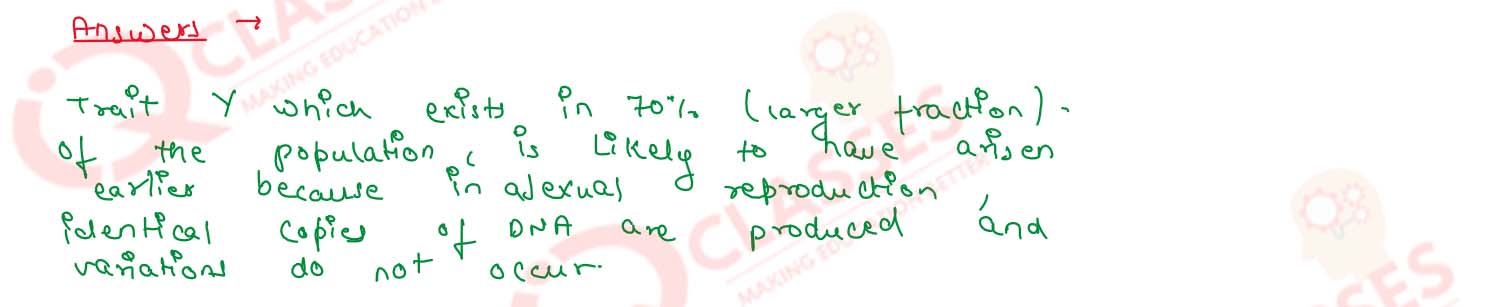 Answers →
Trait Y which exists in 70% (larger fraction).
of the population, is likely to have arisen
earlier because in asexual reproduction,
identical copies of DNA are produced and
variations do not occur.
CLASSES
MAKING EDUCATION
CLASSES
MAKING EDUCATION BETTER